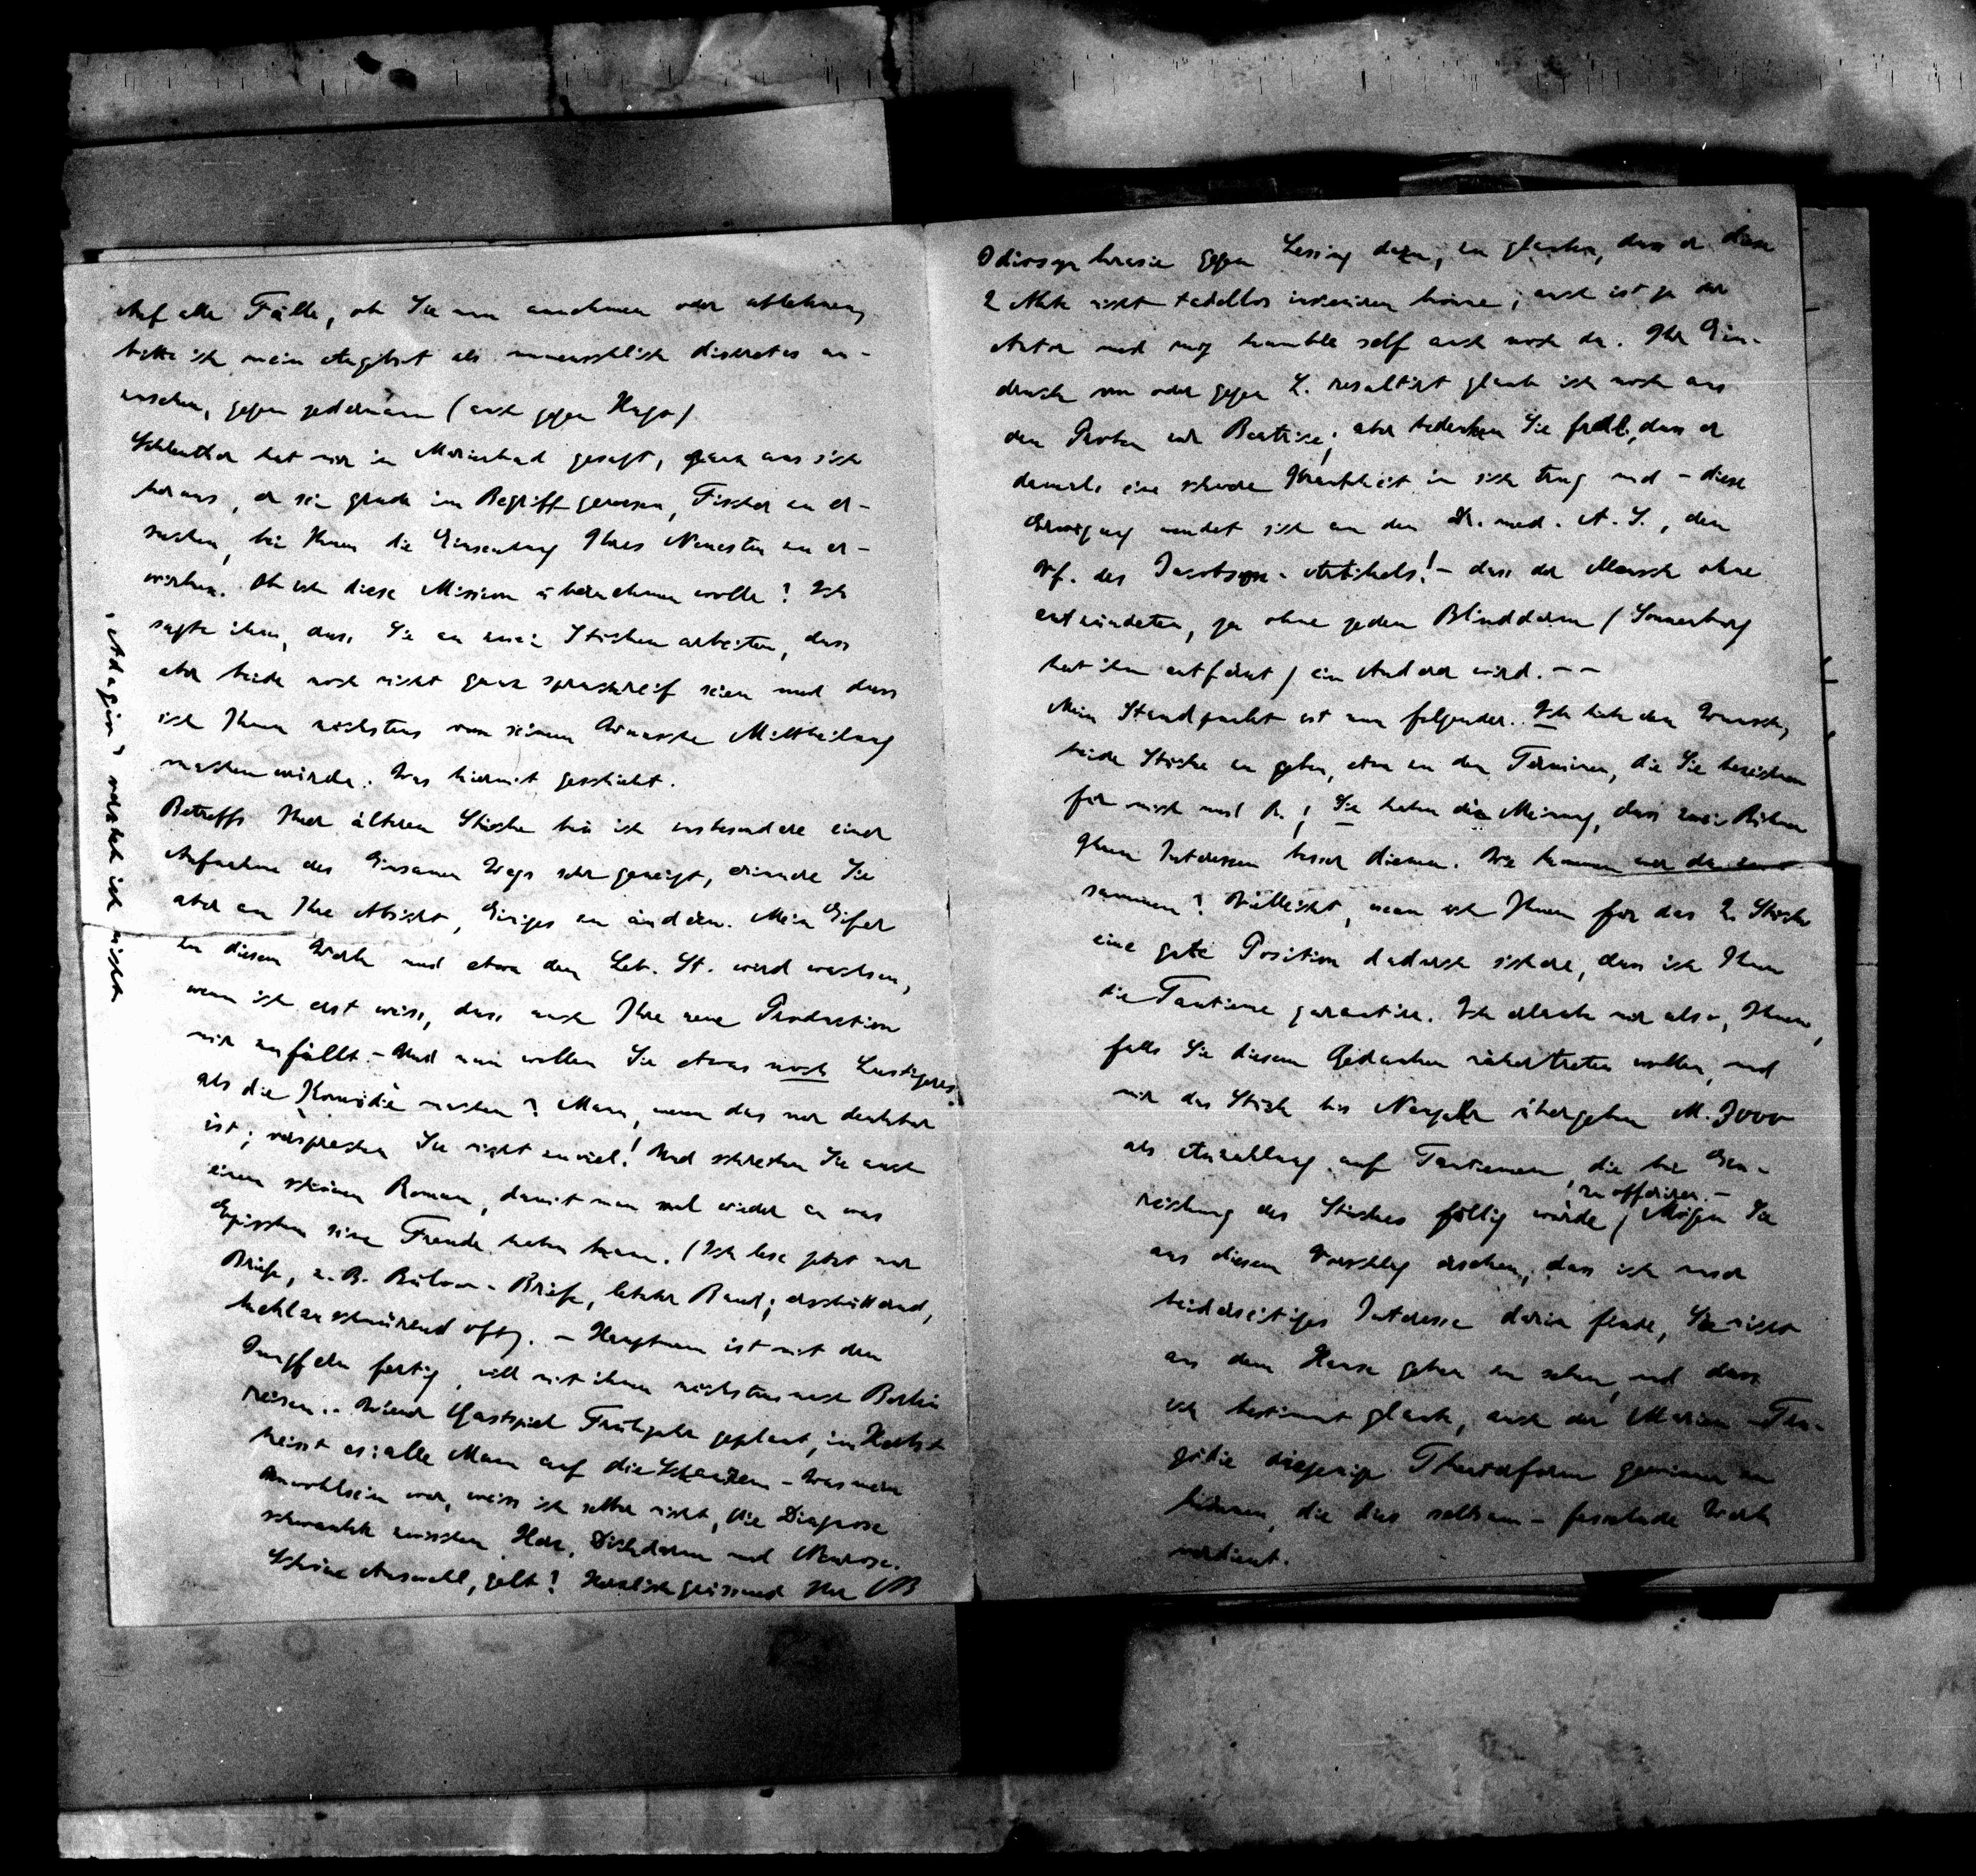 Auf alle Fälle, ob Sie nun annehmen oder ablehnen,
bitte ich, mein Angebot als unmenschlich diskretes an-
zusehen, gegen jedermann (auch gegen Hugo)
Schlenther hat mir in Marienbad gesagt, ganz aus sich
heraus, er sei grade im Begriff gewesen, Fischer zu er-
suchen, bei Ihnen die Einsendung Ihres Neuesten zu er-
wirken. Ob ich diese Mission übernehmen wolle? Ich
sagte ihm, dass Sie an zwei Stücken arbeiten, dass
aber beide noch nicht ganz spruchreif seien und dass
ich Ihnen nächstens von seinem Wunsche Mittheilung
machen würde. Was hiermit geschieht.
Betreffs Ihrer älteren Stücke bin ich insbesondere einer
Aufnahme des Einsamen Wegs sehr geneigt, erinnere Sie
aber an Ihre Absicht, Einiges zu ändern. Mein Eifer
zu diesem Werke und etwa den Leb. St. wird wachsen,
wenn ich erst weiss, dass auch Ihre neue Production
mir zufällt. – Und nun wollen Sie etwas noch Lustigeres
als die Komödie machen? Mann, wenn das nur denkbar
ist; versprechen Sie nicht zuviel! Und schreiben Sie auch
einen schönen Roman, damit man mal wieder an was
Epischem seine Freude haben kann. (Ich lese jetzt nur
Briefe, z. B. Bülow-Briefe, letzter Band; erschütternd,
kehlzuschnürend oft). – Hauptmann ist mit den
Jungfern fertig, will mit ihnen nächstens nach Berlin
reisen.. Wiener Gastspiel Frühjahr geplant, im Herbst
heisst es: alle Mann auf die Schanzen – Was mein
Unwohlsein war, weiss ich selber nicht, die Diagnose
schwankte zwischen Herz, Dickdarm und Neurose.
Schöne Auswahl, gelt! Herzlich grüssend Ihr OB
„Adagio“ versteh ich nicht
Idiosynkrasie gegen Lessing dazu, zu glauben, dass er diese
2 Akte nicht tadellos inscenieren könne; auch ist ja der
Autor und my humble self auch noch da. Ihr Ein-
druck von oder gegen L. resultirt glaube ich noch aus
den Proben zur Beatrice; aber bedenken Sie frdl., dass er
damals eine schwere Krankheit in sich trug und – diese
Erwägung wendet sich an den Dr. med. A. S., den
Vf. des Jacobsohn-Artikels! – dass der Mensch ohne
entzündeten, ja ohne jeden Blinddarm (Sonnenburg
hat ihn entfernt) ein Anderer wird. – –
Mein Standpunkt ist nun folgender. Ich habe den Wunsch,
beide Stücke zu geben, etwa zu den Terminen, die Sie bezeichnen
für mich und R.; Sie haben die Meinung, dass zwei Bühnen
Ihren Interessen besser dienen. Wie kommen wir da zu-
sammen? Vielleicht, wenn ich Ihnen für das 2. Stück
eine gute Position dadurch sichere, dass ich Ihnen
die Tantieme garantire. Ich erlaube mir also, Ihnen,
falls Sie diesem Gedanken nähertreten wollen, und
mir das Stück bis Neujahr übergeben M. 3000
als Anzahlung auf Tantiemen, die bei Ein-
reichung des Stückes fällig würde, zu offeriren. – Mögen Sie
aus diesem Vorschlag ersehen, dass ich unser
beiderseitiges Interesse darin finde, Sie nicht
aus dem Hause gehen zu sehen, und dass
ich bestimmt glaube, auch der Marien-Tra-
gödie diejenige Theaterform gewinnen zu
können, die dies seltsam-fesselnde Werk
verdient.